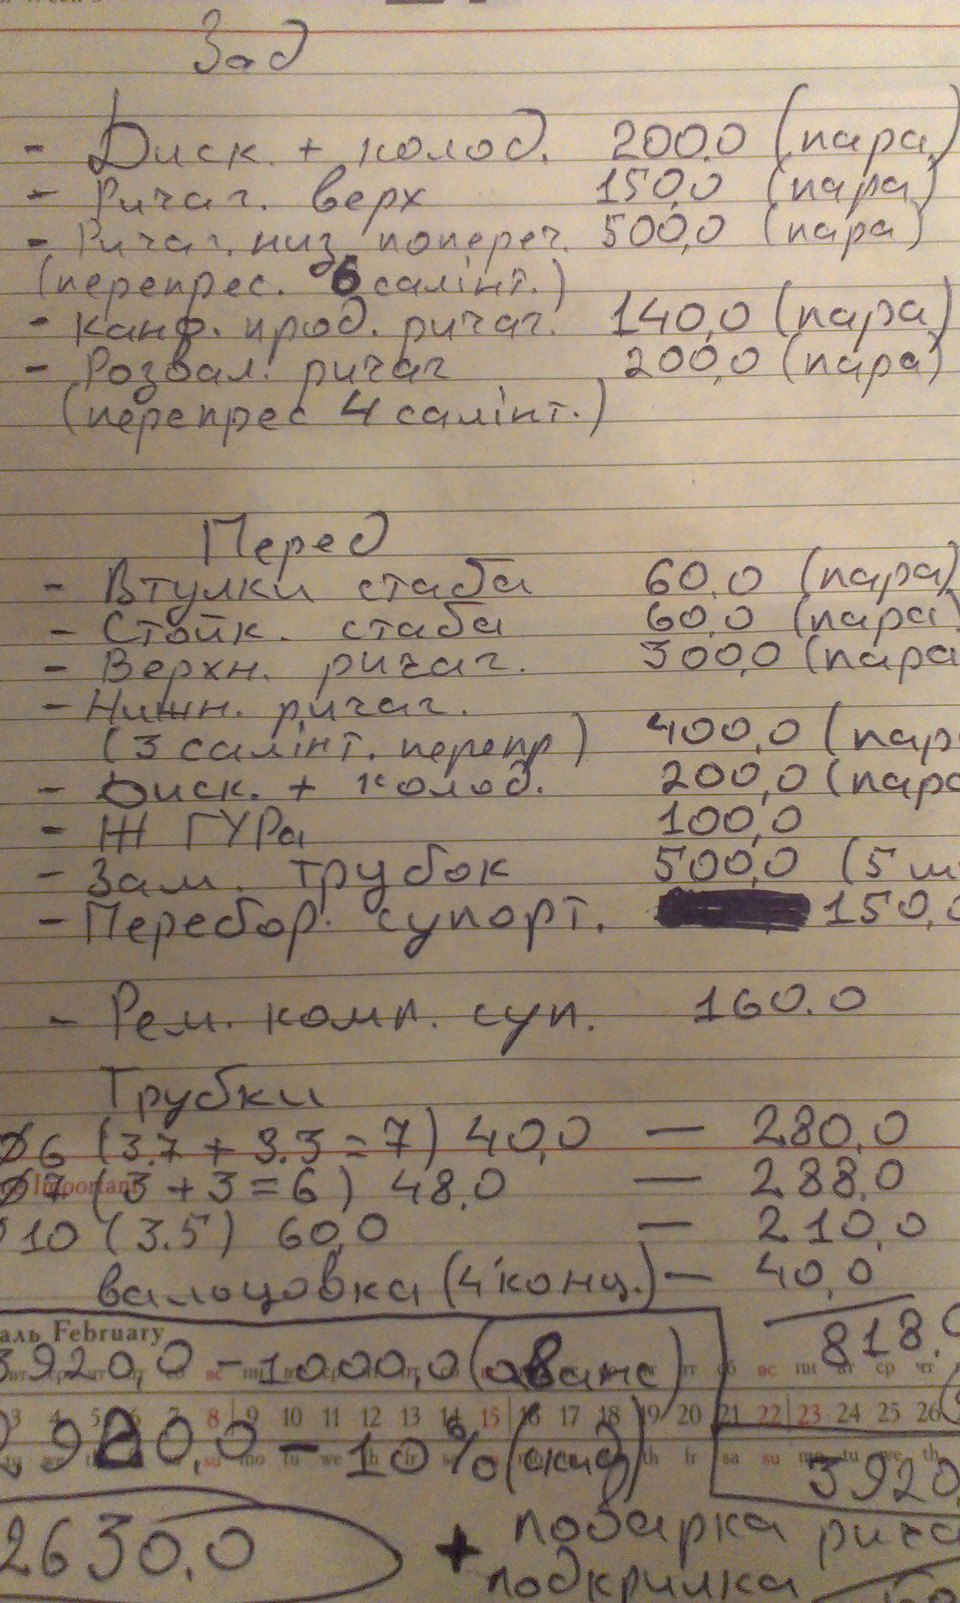 Зад
- Диск. + колод. 200.0 (пара)
- Ричаг. верх 150,0 (пара)
- Ричаг. низ попереч. 500,0 (пара)
(перепрес. 6 салінт.)
- Канф. прод. ричаг. 140,0 (пара)
- Розвал. ричаг 200,0 (пара)
(перепрес 4 салінт.)
Перед
- Втулки стаба 60.0 (пара)
- Стойк. стаба 60.0 (пара)
- Верхн. ричаг. 300,0 (пара
- Нижн. ричаг.
(3 салінт. перепр) 400,0 (пар
- Диск. + колод. 200,0 (пара
- Ж ГУРа 100,0
- Зам. трубок 500,0 (5 ш
- Перебор. супорт. 150,0
- Рем. комп. суп. 160.0
Трубки
Ø6 (3.7 + 3.3 = 7) 40,0 — 280,0
Ø7 (3 + 3 = 6) 48,0 — 288,0
10 (3.5) 60,0 — 210,0
вальцовка (4 конц.) — 40,0
818.0
аль February
3920,0 - 1000,0 (аванс)
3 4 5 6 7 8 9 10 11 12 13 14 15 16 17 18 19 20 21 22 23 24 25 26
2920,0 - 10% (скид)
3920
2630,0 + поварка рича
подкрилка